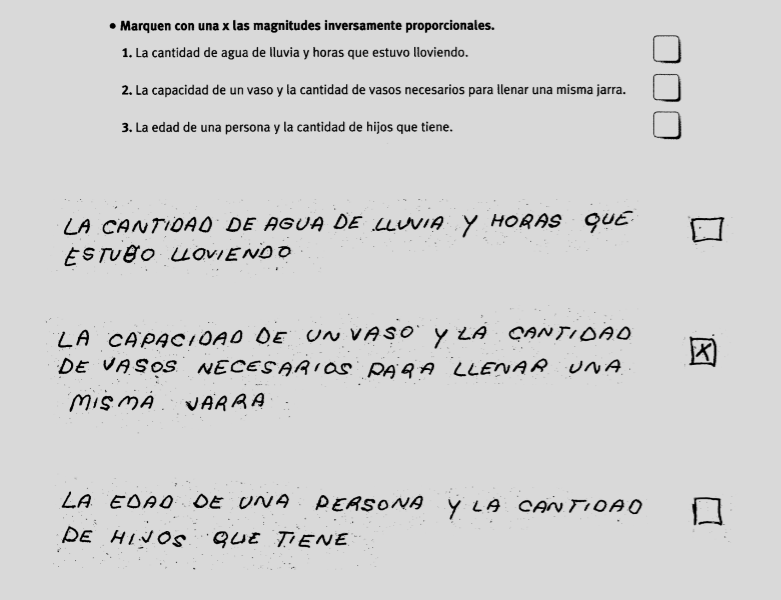 • Marquen con una x las magnitudes inversamente proporcionales.
1. La cantidad de agua de lluvia y horas que estuvo lloviendo.
2. La capacidad de un vaso y la cantidad de vasos necesarios para llenar una misma jarra.
3. La edad de una persona y la cantidad de hijos que tiene.
LA CANTIDAD DE AGUA DE LLUVIA Y HORAS QUE
ESTUBO LLOVIENDO
LA CAPACIDAD DE UN VASO Y LA CANTIDAD
X
DE VASOS NECESARIOS PARA LLENAR UNA
MISMA JARRA
LA EDAD DE UNA PERSONA Y LA CANTIDAD
DE HIJOS QUE TIENE